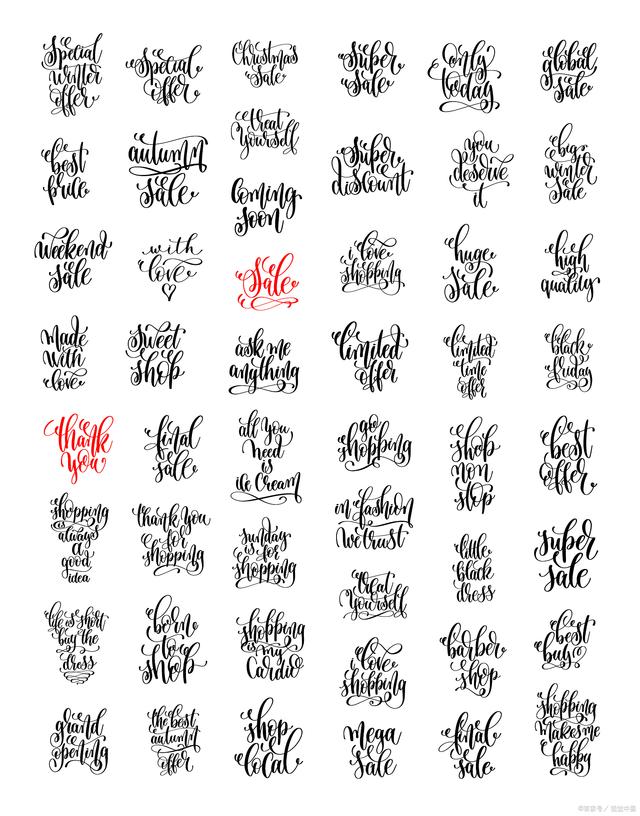 Special
winter
offer
best
price
weekend
Sale
Made
with
love
thank
you
shopping
is
always
a
good
idea
life is short
buy the
dress
grand
opening
Special
offer
autumn
Sale
with
love
Sweet
Shop
final
sale
thank you
for
shopping
born
to
shop
the best
autumn
offer
Christmas
Sale
treat
Yourself
Coming
Soon
Sale
ask me
anything
all you
need
is
ice Cream
sunday
is for
shopping
shopping
is my
Cardio
shop
local
Super
Sale
Super
discount
i love
shopping
limited
offer
go
shopping
in fashion
we trust
treat
Yourself
i love
shopping
mega
Sale
only
today
you
deserve
it
huge
Sale
limited
time
offer
shop
non
stop
little
black
dress
barber
shop
final
Sale
global
Sale
big
winter
Sale
high
quality
black
friday
best
offer
super
sale
best
buy
shopping
Makes me
happy